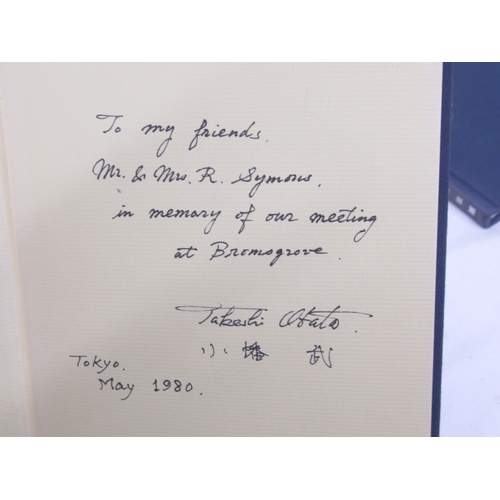 To my friends.
Mr. & Mrs. R. Symons,
in memory of our meeting
at Bromsgrove.
Takeshi Obata.
小幡 武
Tokyo.
May 1980.